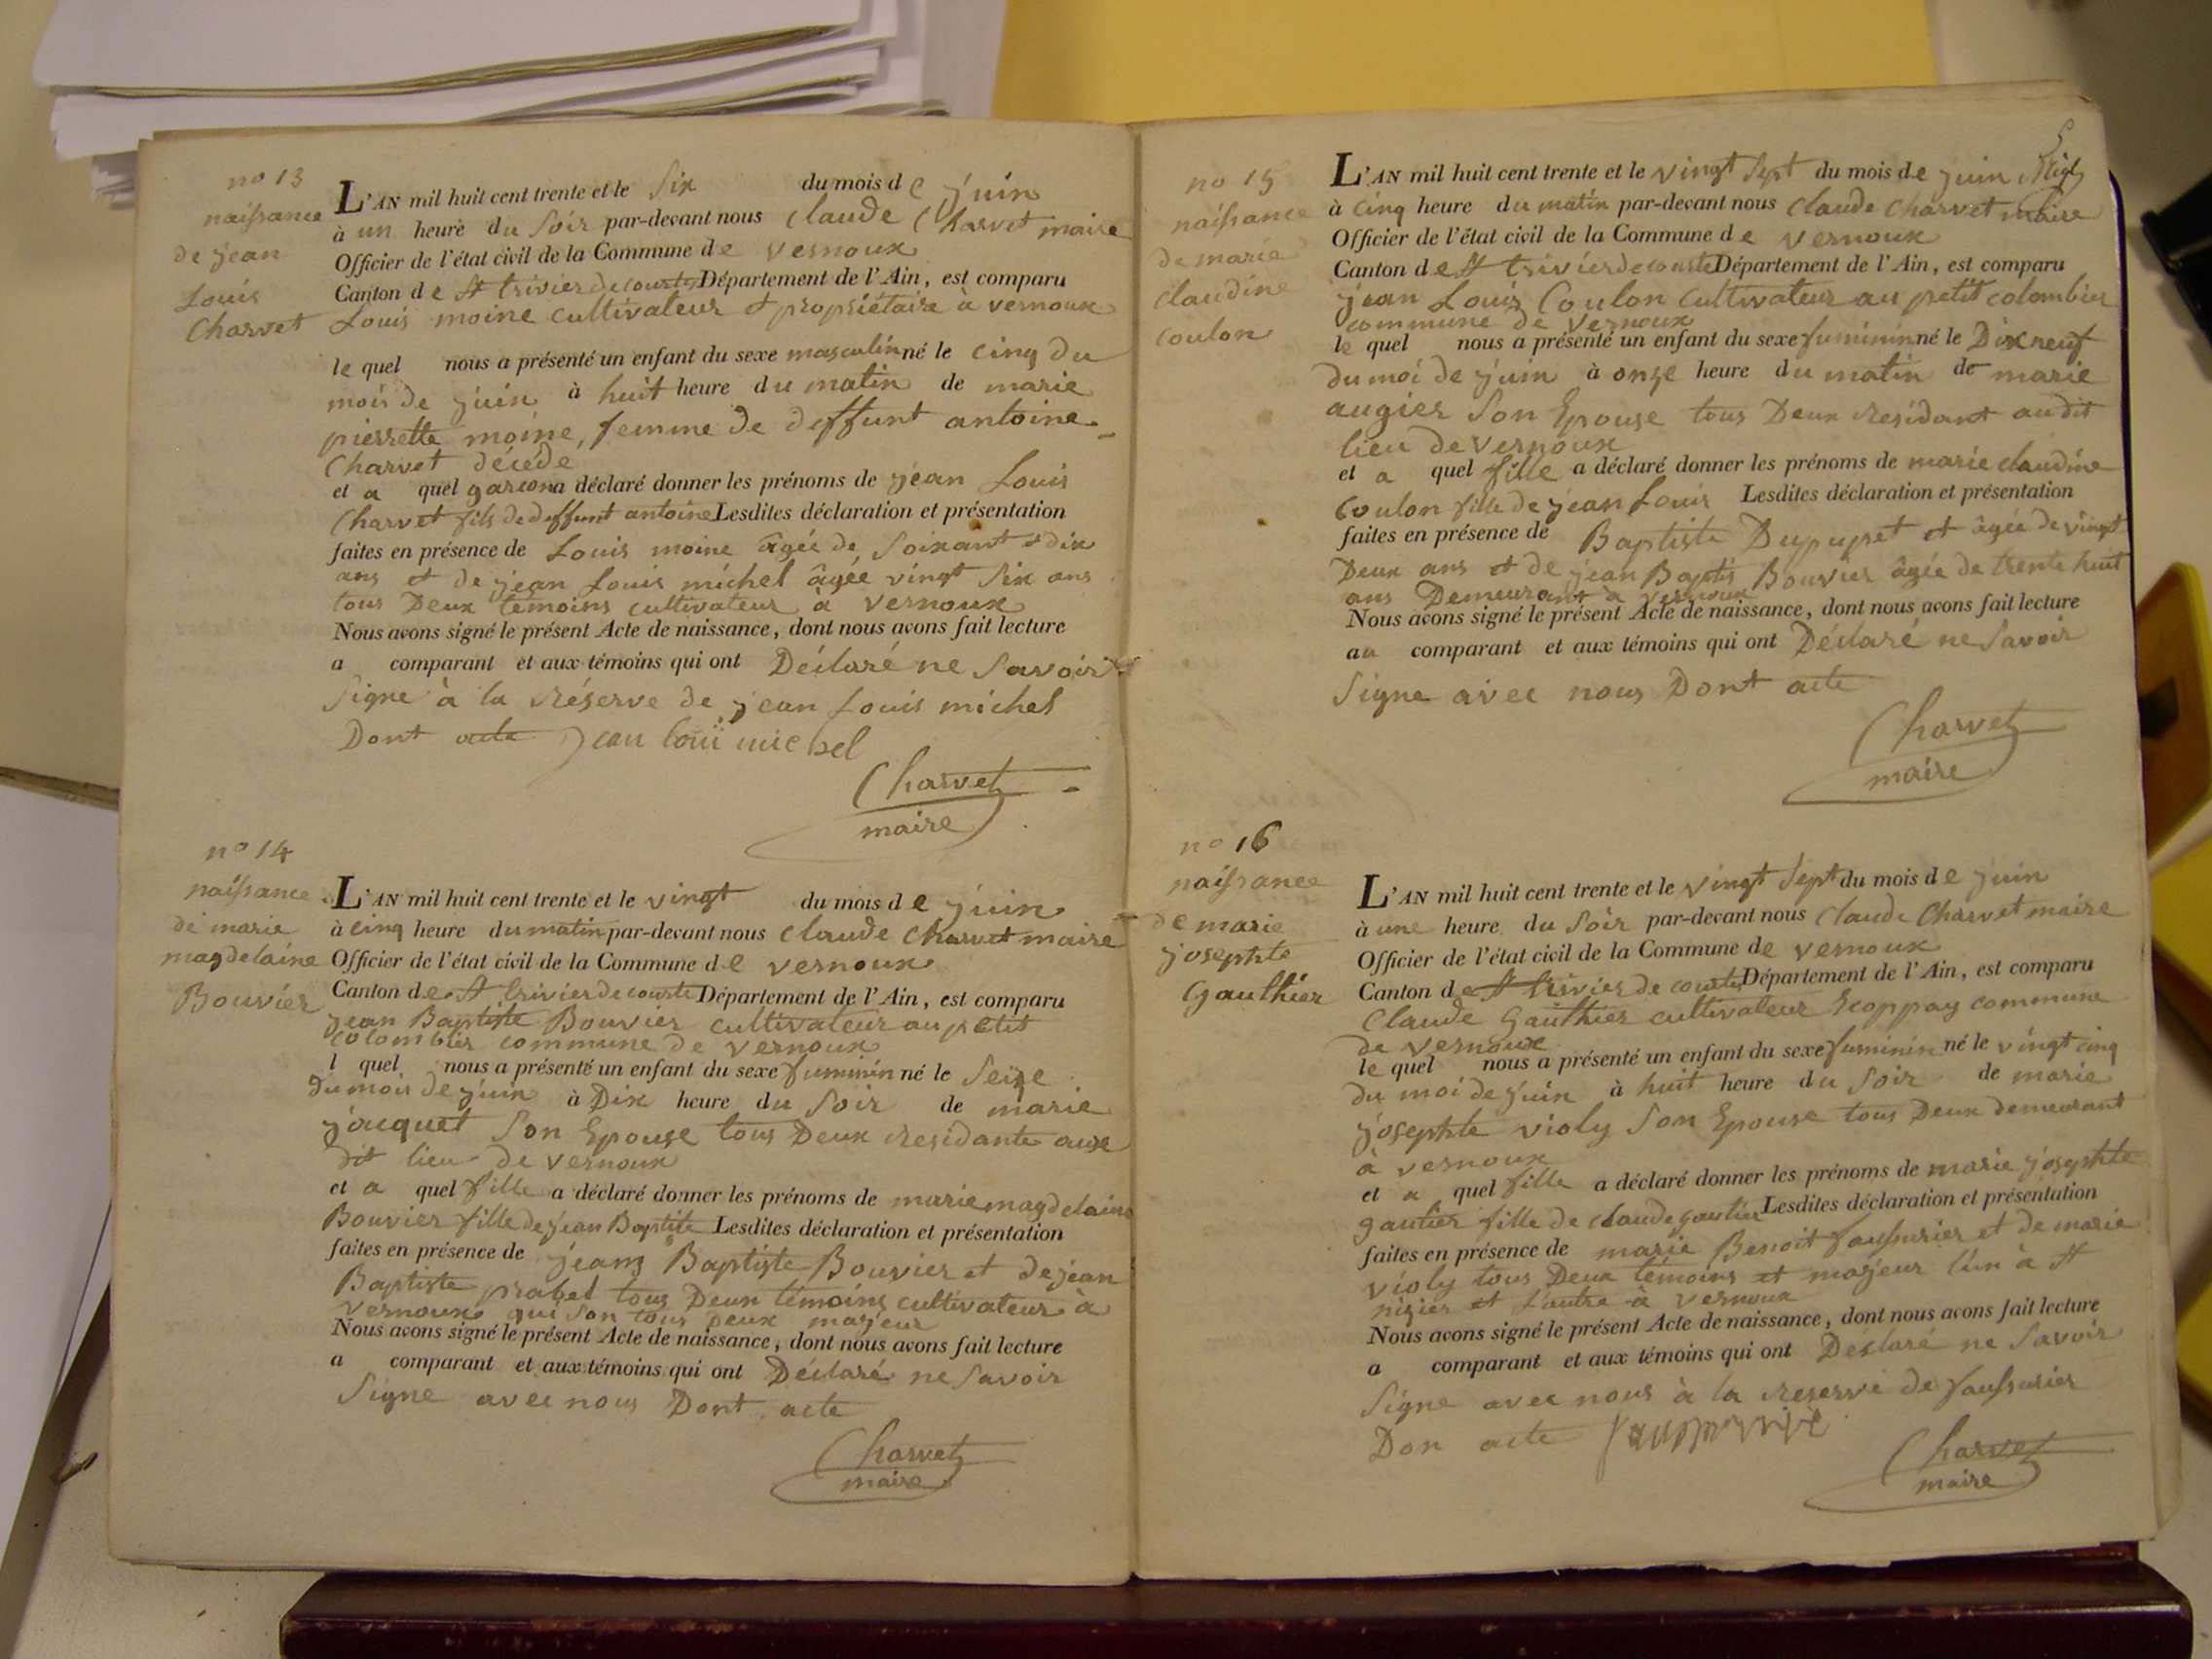 no 13
naissance
de jean
Louis
Charvet
L'AN mil huit cent trente et le Six du mois de juin
à un heure du Soir par-devant nous Claude Charvet maire
Officier de l'état civil de la Commune de vernoux
Canton de St trivier de courte Département de l'Ain, est comparu
Louis moine cultivateur et propriétaire a vernoux
le quel nous a présenté un enfant du sexe masculin né le cinq du
mois de juin à huit heure du matin de marie
pierrette moine, femme de deffunt antoine
Charvet décédé
et a quel garcon a déclaré donner les prénoms de jean Louis
Charvet fils de deffunt antoine Lesdites déclaration et présentation
faites en présence de Louis moine âgée de Soixant et dix
ans et de jean Louis michel âgée vingt Six ans
tous Deux temoins cultivateur à vernoux
Nous avons signé le présent Acte de naissance, dont nous avons fait lecture
a comparant et aux témoins qui ont Déclaré ne Savoir
Signe à la réserve de jean Louis michel
Dont acte Jean louii michel
Charvet
maire
no 14
naissance
de marie
magdelaine
Bouvier
L'AN mil huit cent trente et le vingt du mois de juin
à cinq heure du matin par-devant nous Claude Charvet maire
Officier de l'état civil de la Commune de vernoux
Canton de St trivier de courte Département de l'Ain, est comparu
jean Baptiste Bouvier cultivateur au petit
colombier commune de vernoux
l quel nous a présenté un enfant du sexe fuminin né le Seize
du mois de juin à Dix heure du Soir de marie
jacquet Son Epouse tous Deux residante aux
dit lieu de vernoux
et a quel fille a déclaré donner les prénoms de marie magdelaine
Bouvier fille de jean Baptiste Lesdites déclaration et présentation
faites en présence de jean Baptiste Bouvier et de jean
Baptiste prabel tous Deux témoins cultivateur à
vernoux qui Son tous Deux majeur
Nous avons signé le présent Acte de naissance, dont nous avons fait lecture
a comparant et aux témoins qui ont Déclaré ne Savoir
Signe avec nous Dont acte
Charvet
maire
5
no 15
naissance
de marie
claudine
coulon
L'AN mil huit cent trente et le vingt Sept du mois de juin
à Cinq heure du matin par-devant nous Claude Charvet maire
Officier de l'état civil de la Commune de vernoux
Canton de St trivier de courte Département de l'Ain, est comparu
jean Louis Coulon cultivateur au petit colombier
commune de vernoux
le quel nous a présenté un enfant du sexe fuminin né le Dix neuf
du moi de juin à onze heure du matin de marie
augier Son Epouse tous Deux residant audit
lieu de vernoux
et a quel fille a déclaré donner les prénoms de marie claudine
Coulon fille de jean Louis Lesdites déclaration et présentation
faites en présence de Baptiste Dupupet et âgée de vingt
Deux ans et de jean Baptis Bouvier âgée de trente huit
ans Demeurant a vernoux
Nous avons signé le présent Acte de naissance, dont nous avons fait lecture
au comparant et aux témoins qui ont Déclaré ne Savoir
Signe avec nous Dont acte
Charvet
maire
no 16
naissance
de marie
josephte
Gauthier
L'AN mil huit cent trente et le vingt Sept du mois de juin
à une heure du Soir par-devant nous Claude Charvet maire
Officier de l'état civil de la Commune de vernoux
Canton de St trivier de courte Département de l'Ain, est comparu
Claude Gauthier cultivateur Ecoppay commune
de vernoux
le quel nous a présenté un enfant du sexe fuminin né le vingt cinq
du moi de juin à huit heure du Soir de marie
josephte violy Son Epouse tous Deux demeurant
à vernoux
et a quel fille a déclaré donner les prénoms de marie josephte
gautier fille de claude gautier Lesdites déclaration et présentation
faites en présence de marie Benoit faussurier et de marie
violy tous Deux témoins et majeur l'un à St
nizier et l'autre à vernoux
Nous avons signé le présent Acte de naissance, dont nous avons fait lecture
a comparant et aux témoins qui ont Déclaré ne Savoir
Signe avec nous à la reserve de faussurier
Don acte
Charvet
maire